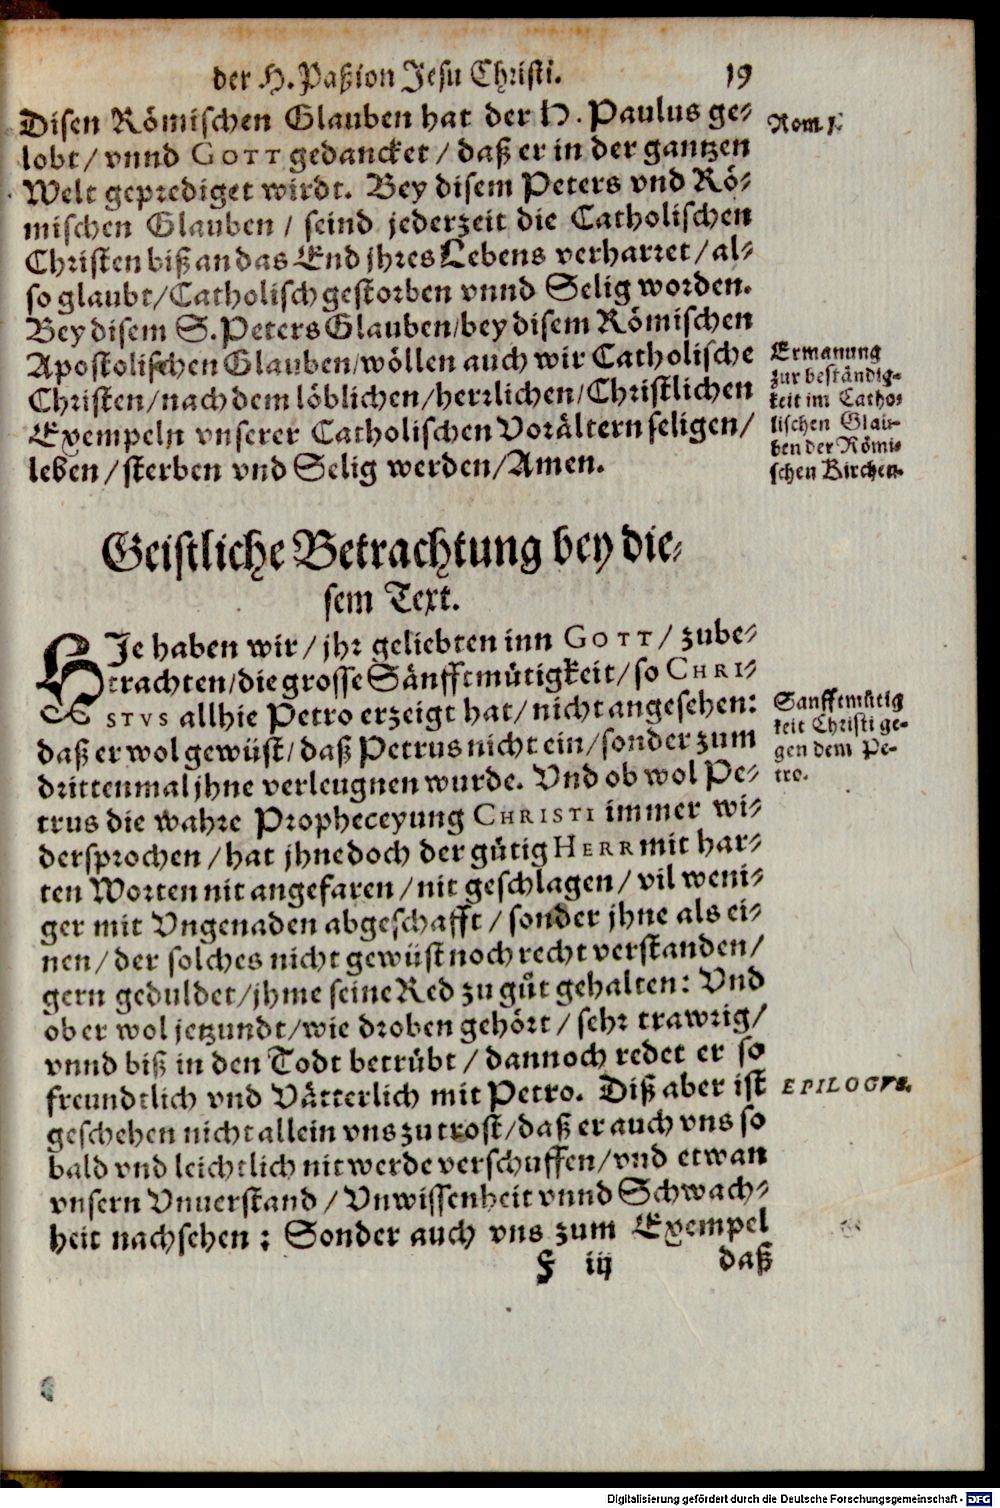 der H. Paßion Jesu Christi. 19
Disen Römischen Glauben hat der H. Paulus ge-
lobt/ vnnd GOTT gedancket/ daß er in der gantzen
Welt geprediget wirdt. Bey disem Peters vnd Rö-
mischen Glauben/ seind jederzeit die Catholischen
Christen biß an das End jhres Lebens verharret/ al-
so glaubt/ Catholisch gestorben vnnd Selig worden.
Bey disem S. Peters Glauben/ bey disem Römischen
Apostolischen Glauben/ wöllen auch wir Catholische
Christen/ nach dem löblichen/ herrlichen/ Christlichen
Exempeln vnserer Catholischen Vorältern seligen/
leben/ sterben vnd Selig werden/ Amen.
Rom. 1.
Ermanung
zur beständig-
keit im Catho-
lischen Glau-
ben der Römi-
schen Kirchen.
Geistliche Betrachtung bey die-
sem Text.
HIe haben wir/ jhr geliebten inn GOTT/ zube-
trachten/ die grosse Sänfftmütigkeit/ so CHRI-
STVS allhie Petro erzeigt hat/ nicht angesehen:
daß er wol gewüst/ daß Petrus nicht ein/ sonder zum
drittenmal jhne verleugnen wurde. Vnd ob wol Pe-
trus die wahre Propheceyung CHRISTI immer wi-
dersprochen/ hat jhne doch der gütig HERR mit har-
ten Worten nit angefaren/ nit geschlagen/ vil weni-
ger mit Vngenaden abgeschafft/ sonder jhne als ei-
nen/ der solches nicht gewüst noch recht verstanden/
gern geduldet/ jhme seine Red zu gůt gehalten: Vnd
ob er wol jetzundt/ wie droben gehört/ sehr trawrig/
vnnd biß in den Todt betrübt/ dannoch redet er so
freundtlich vnd Vätterlich mit Petro. Diß aber ist
geschehen nicht allein vns zu trost/ daß er auch vns so
bald vnd leichtlich nit werde verschuffen/ vnd etwan
vnsern Vnuerstand/ Vnwissenheit vnnd Schwach-
heit nachsehen: Sonder auch vns zum Exempel
Sanfftmütig
keit Christi ge-
gen dem Pe-
tro.
EPILOGVS.
F iij daß
Digitalisierung gefördert durch die Deutsche Forschungsgemeinschaft - DFG